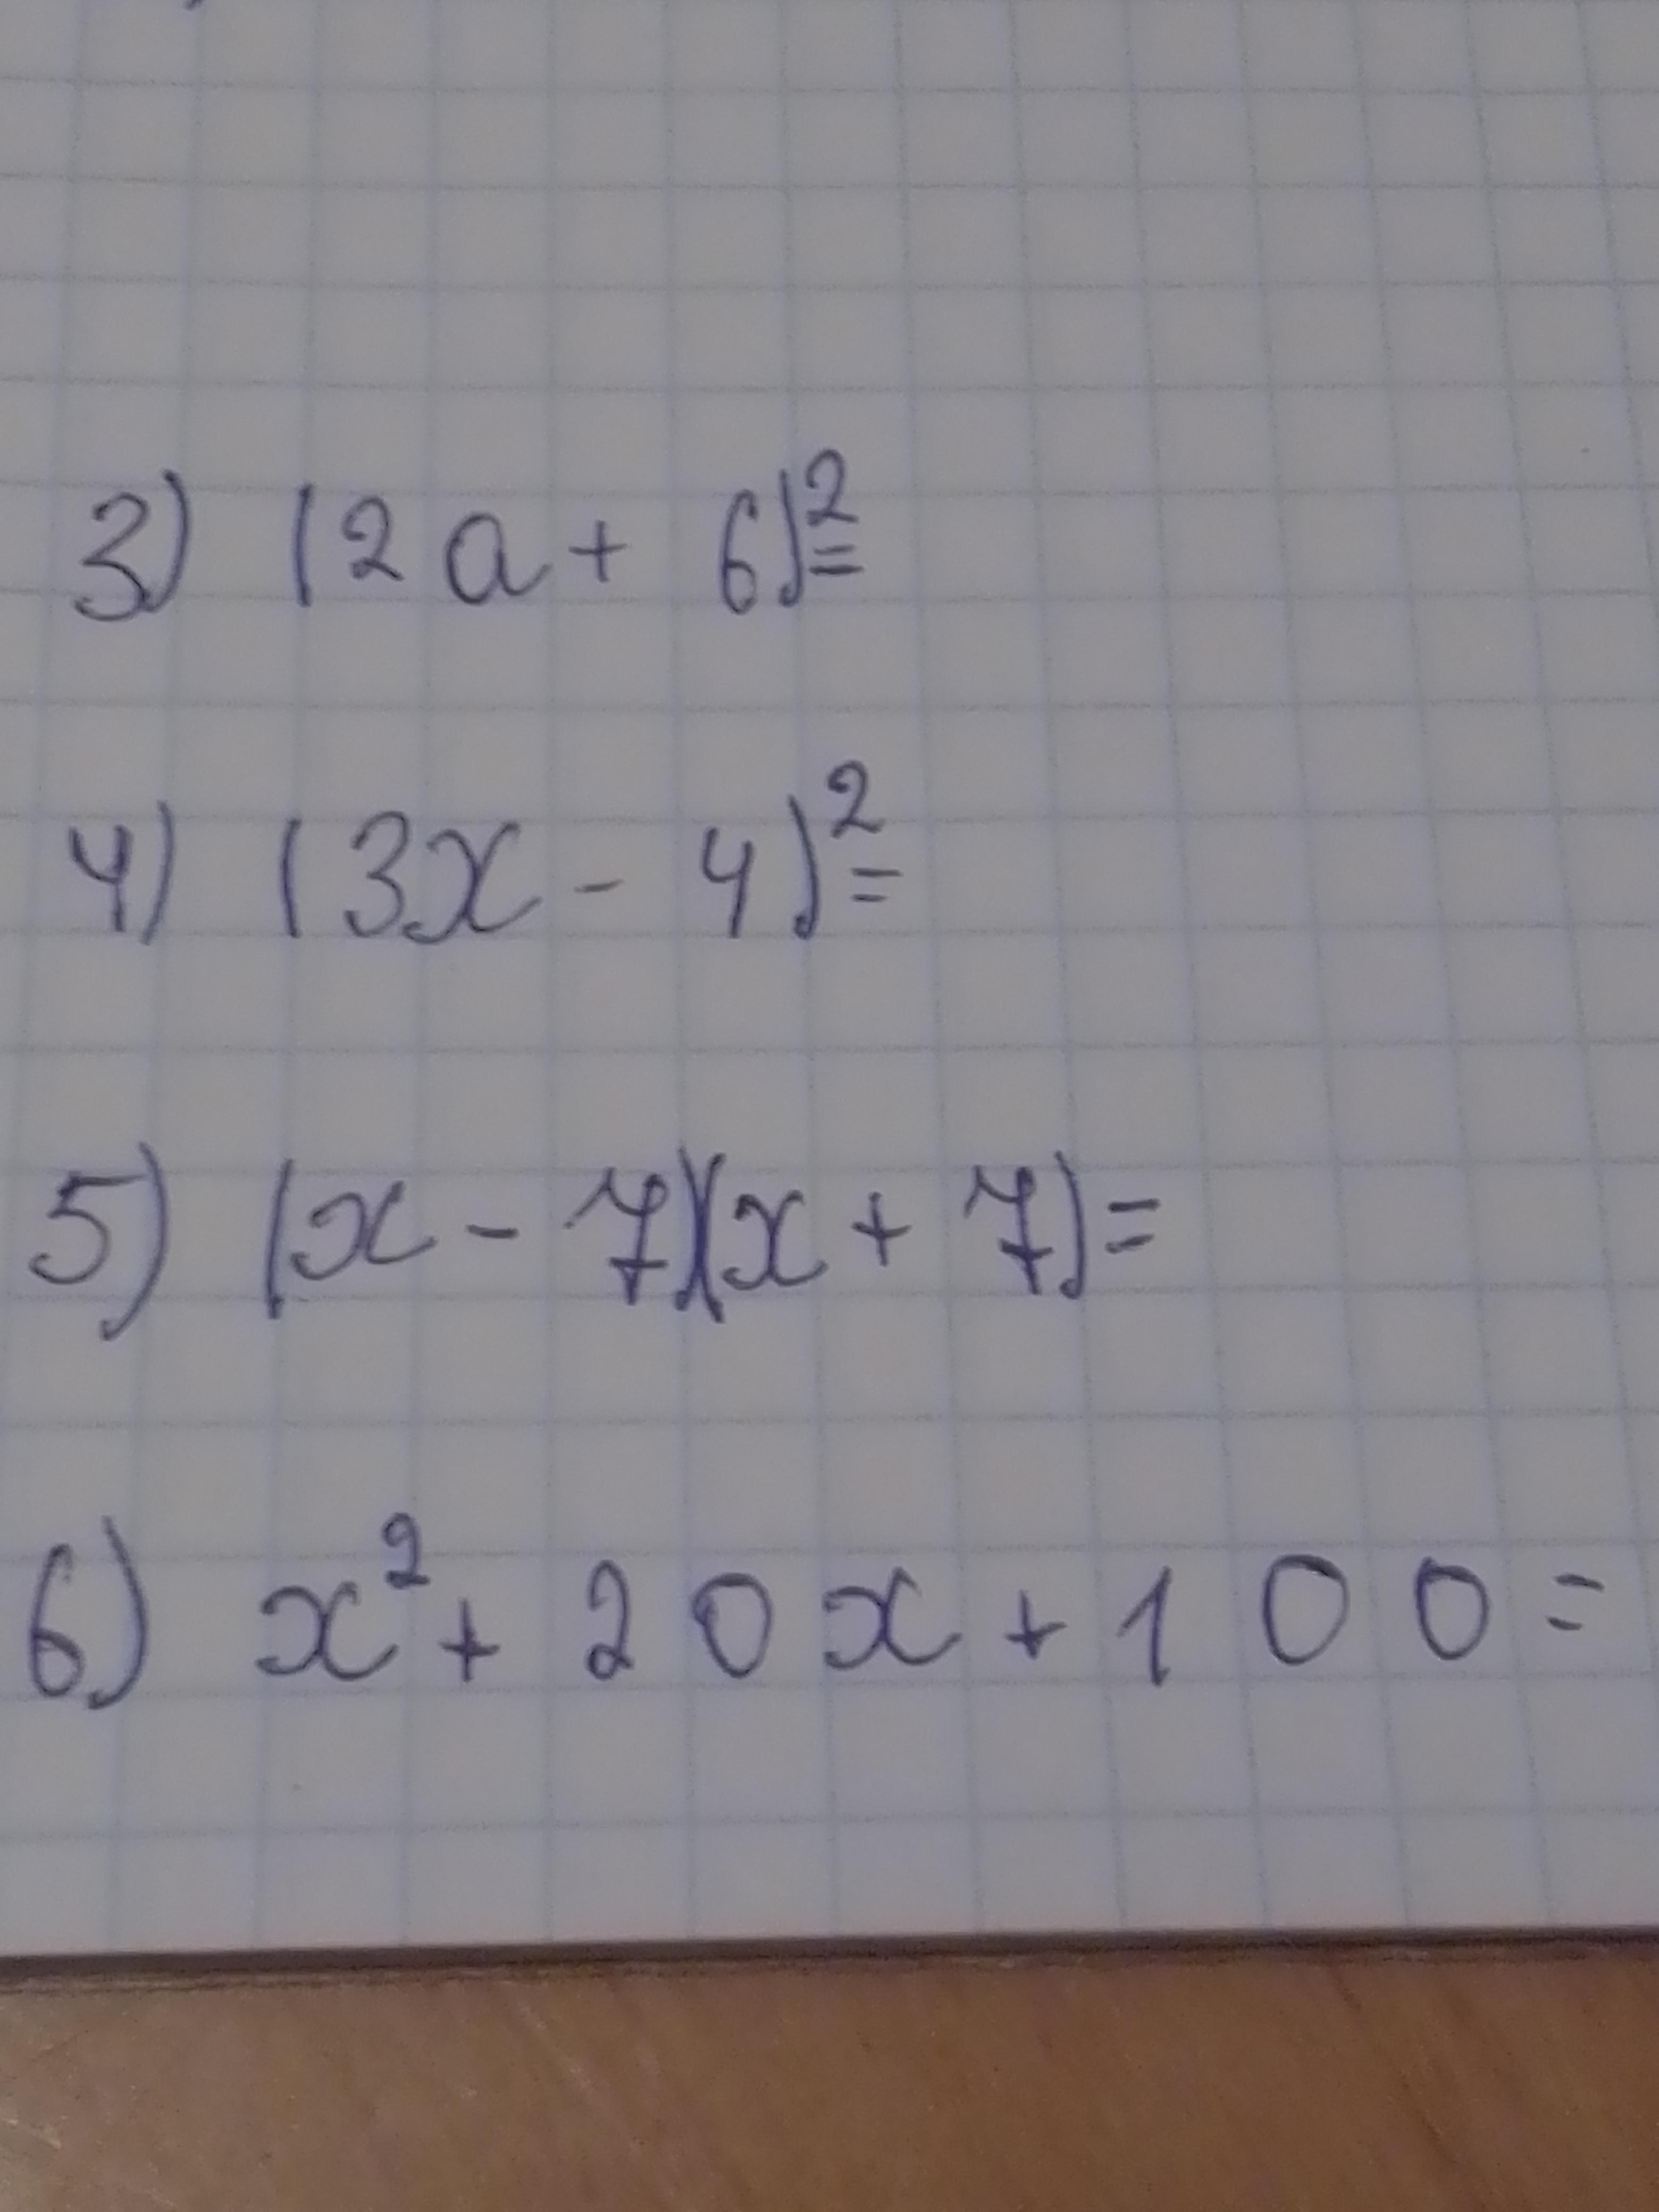 3) (2a + 6)²=
4) (3x - 4)²=
5) (x - 7)(x + 7)=
6) x² + 20x + 100=